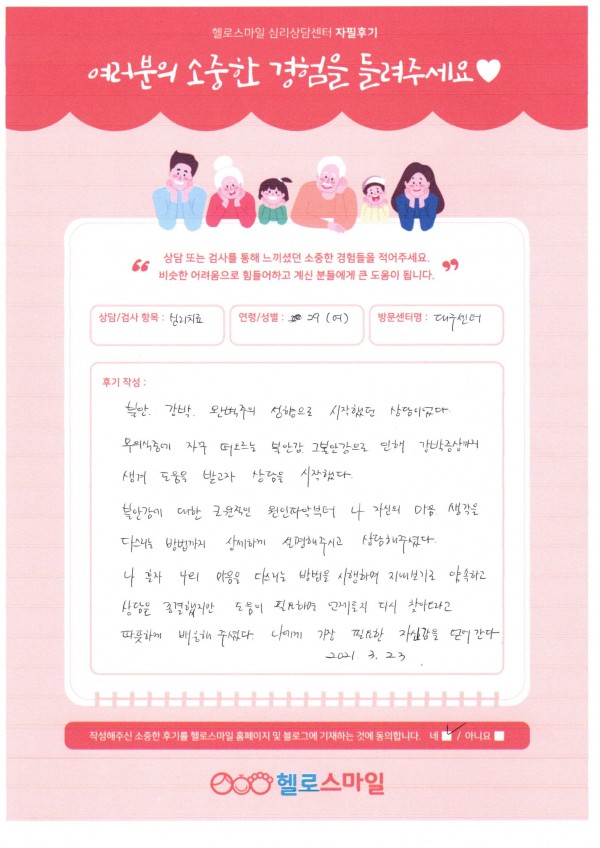 헬로스마일 심리상담센터 자필후기
여러분의 소중한 경험을 들려주세요
상담 또는 검사를 통해 느끼셨던 소중한 경험들을 적어주세요.
비슷한 어려움으로 힘들어하고 계신 분들에게 큰 도움이 됩니다.
상담/검사 항목 : 심리치료
연령/성별 : 29 (여)
방문센터명 : 대구센터
후기 작성 :
불안. 강박. 완벽주의 성향으로 시작했던 상담이었다.
무의식중에 자꾸 떠오르는 불안감 그불안감으로 인해 강박증상까지
생겨 도움을 받고자 상담을 시작했다.
불안감에 대한 근원적인 원인파악부터 나 자신의 마음 생각을
다스리는 방법까지 상세하게 설명해주시고 상담해주셨다.
나 혼자 마음을 다스리는 방법을 시행하며 지내보기로 약속하고
상담을 종결했지만 도움이 필요하면 언제든지 다시 찾아오라고
따뜻하게 배웅해 주셨다. 나에게 가장 필요한 자신감을 얻어간다
2021 3. 23
작성해주신 소중한 후기를 헬로스마일 홈페이지 및 블로그에 기재하는 것에 동의합니다. 네 / 아니요
헬로스마일